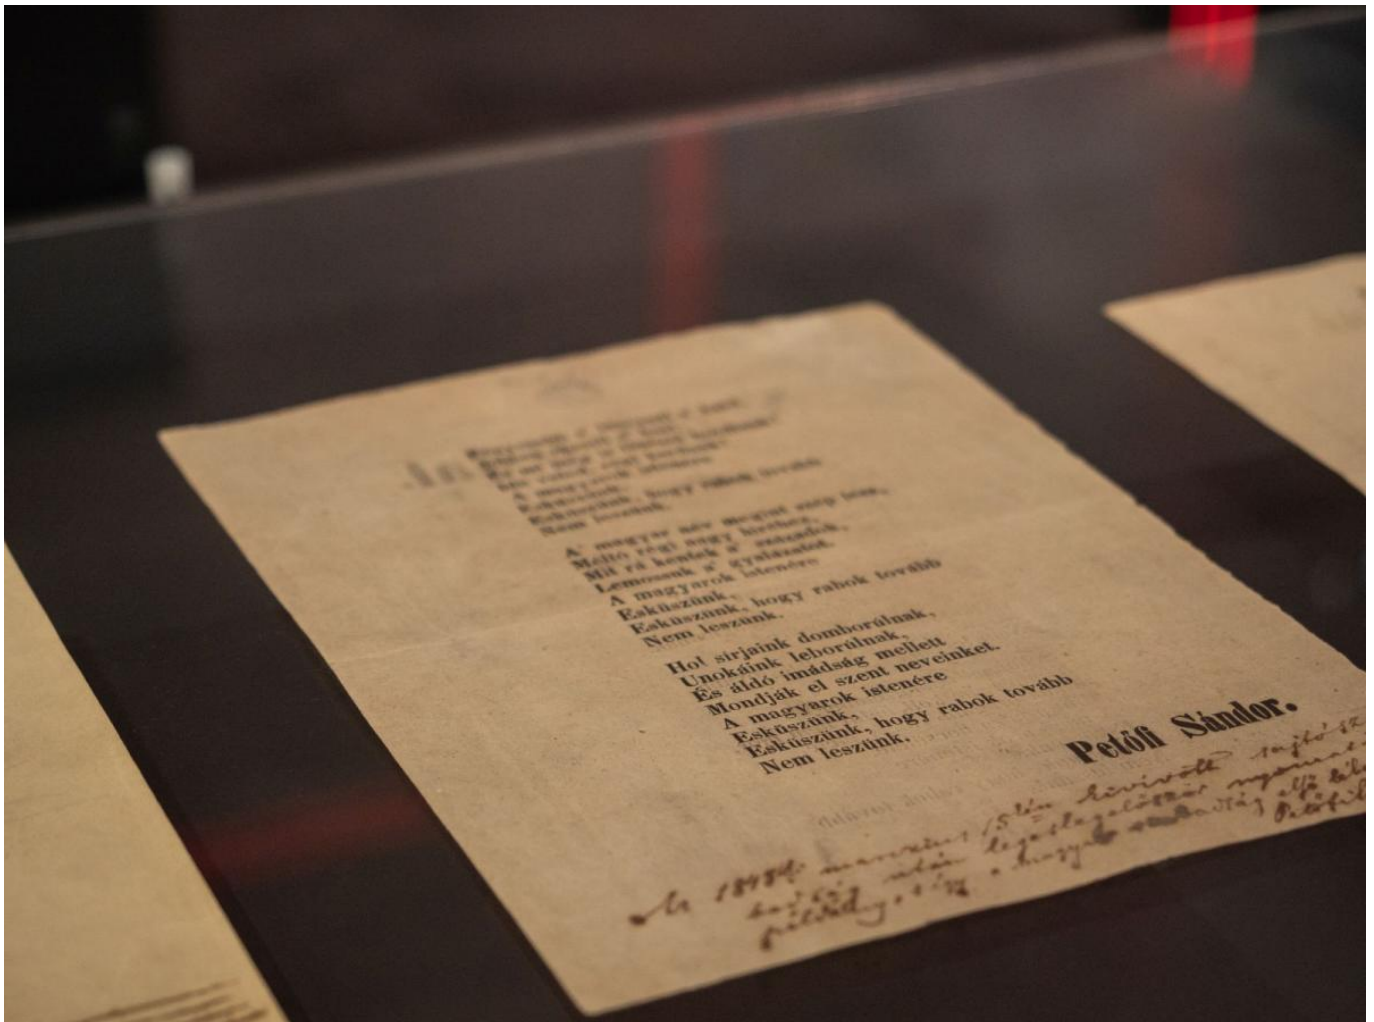 A magyarok istenére
Esküszünk,
Esküszünk, hogy rabok tovább
Nem leszünk.
A' magyar név megint szép lesz,
Méltó régi nagy hiréhez,
Mit rá kentek a' századok,
Lemossuk a' gyalázatot.
A magyarok istenére
Esküszünk,
Esküszünk, hogy rabok tovább
Nem leszünk.
Hol sírjaink domborúlnak,
Unokáink leborúlnak,
És áldó imádság mellett
Mondják el szent neveinket.
A magyarok istenére
Esküszünk,
Esküszünk, hogy rabok tovább
Nem leszünk.
Petőfi Sándor.
Az 1848dik marczius 15kén kivívott sajtósza
badság után legeslegelőször nyomato
példány, s így a magyar szabadság első lé
Petőfi